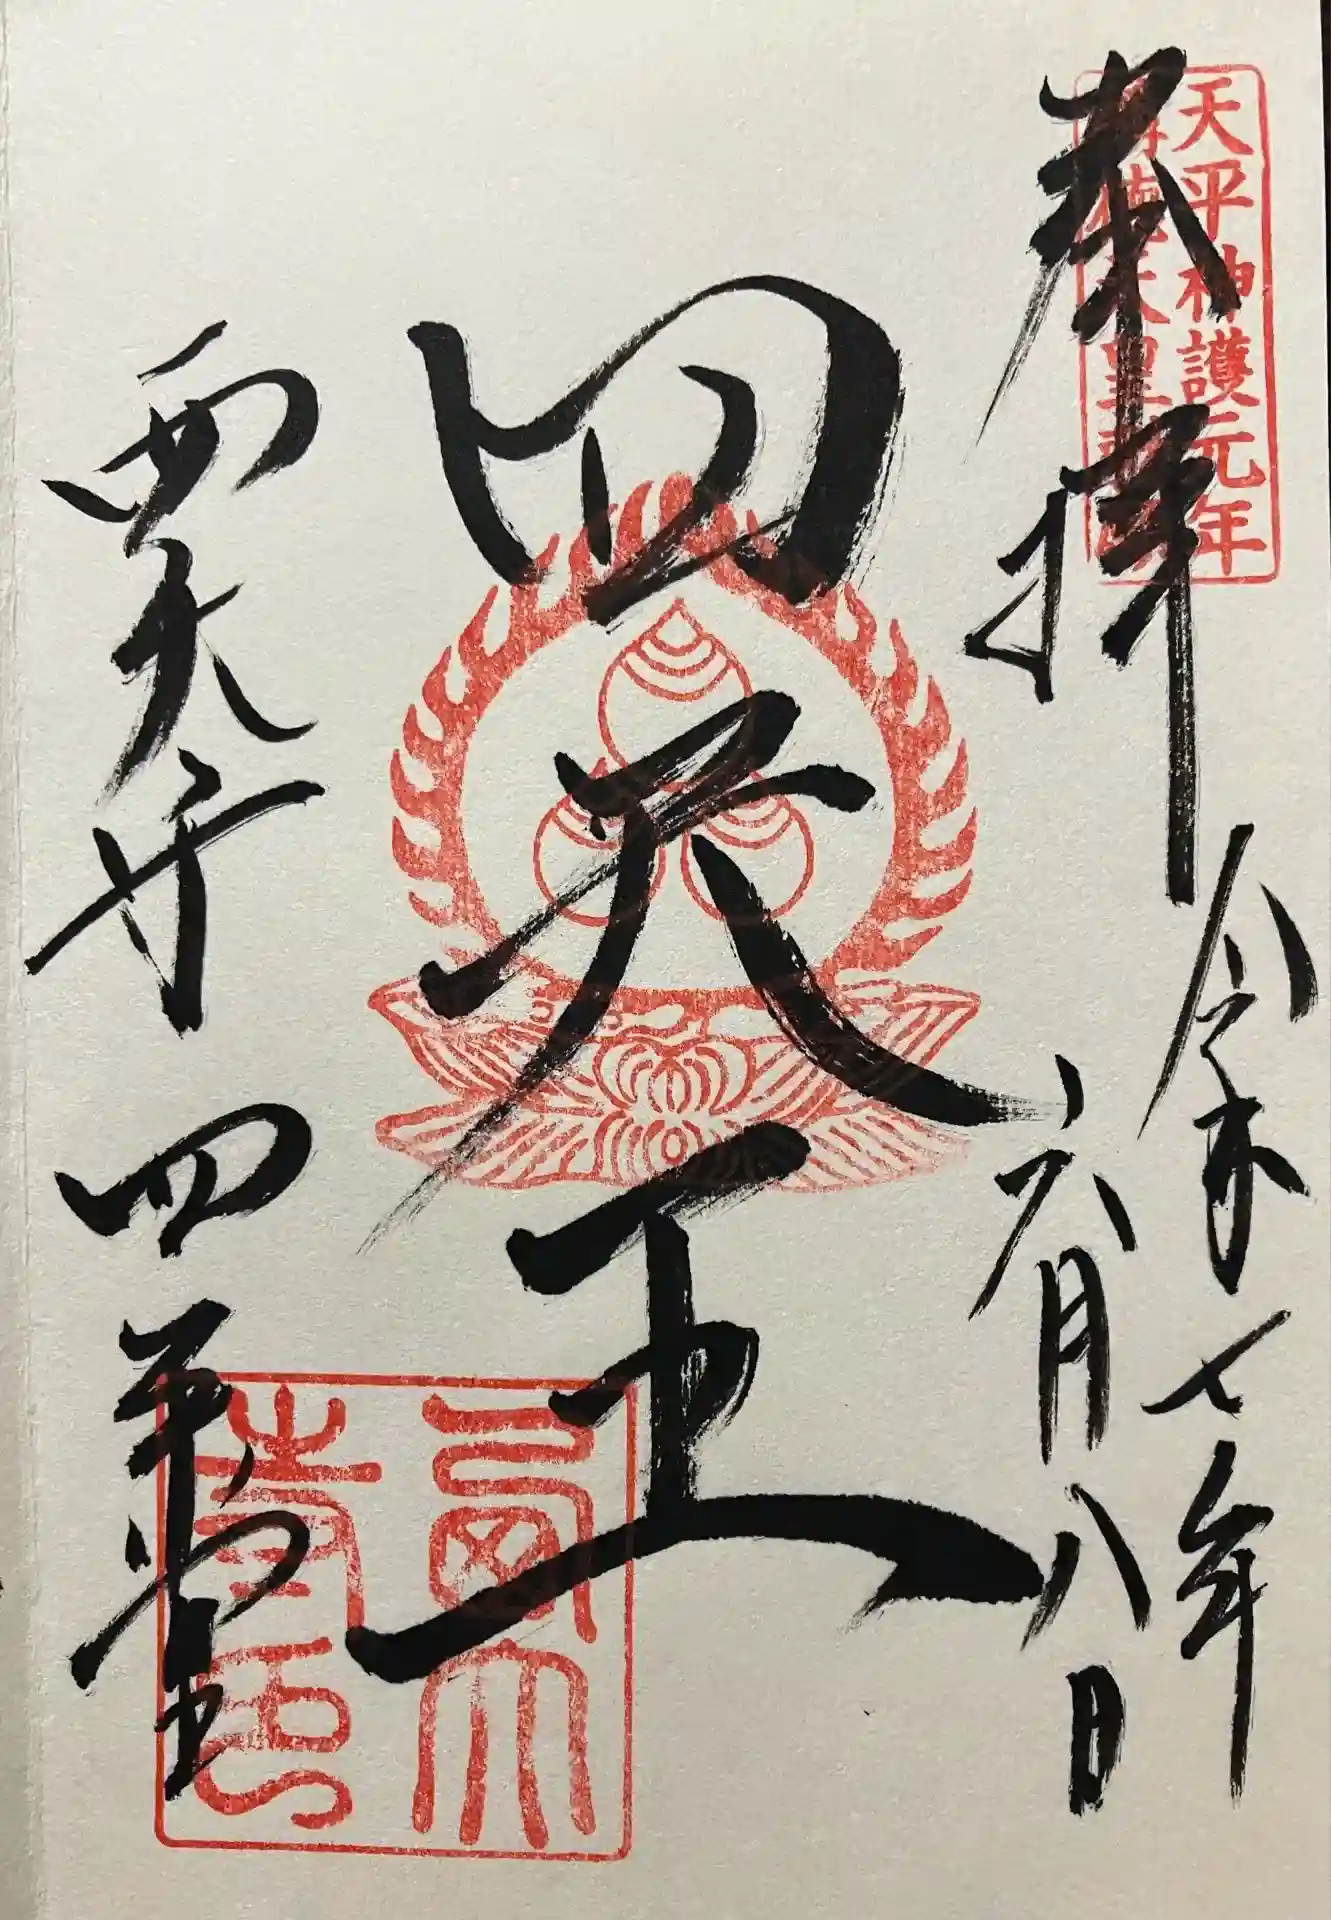 奉拝
天平神護元年
称徳天皇勅願
令和七年
六月八日
四天王
西大寺 四王堂
西大寺印